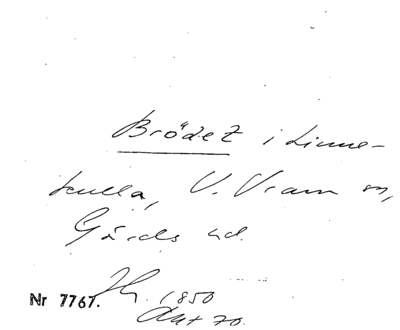 Brödet i Linne-
kulla, V. Vram sn,
Gärds hd.
Nr 7767. 1850
Akt 70.